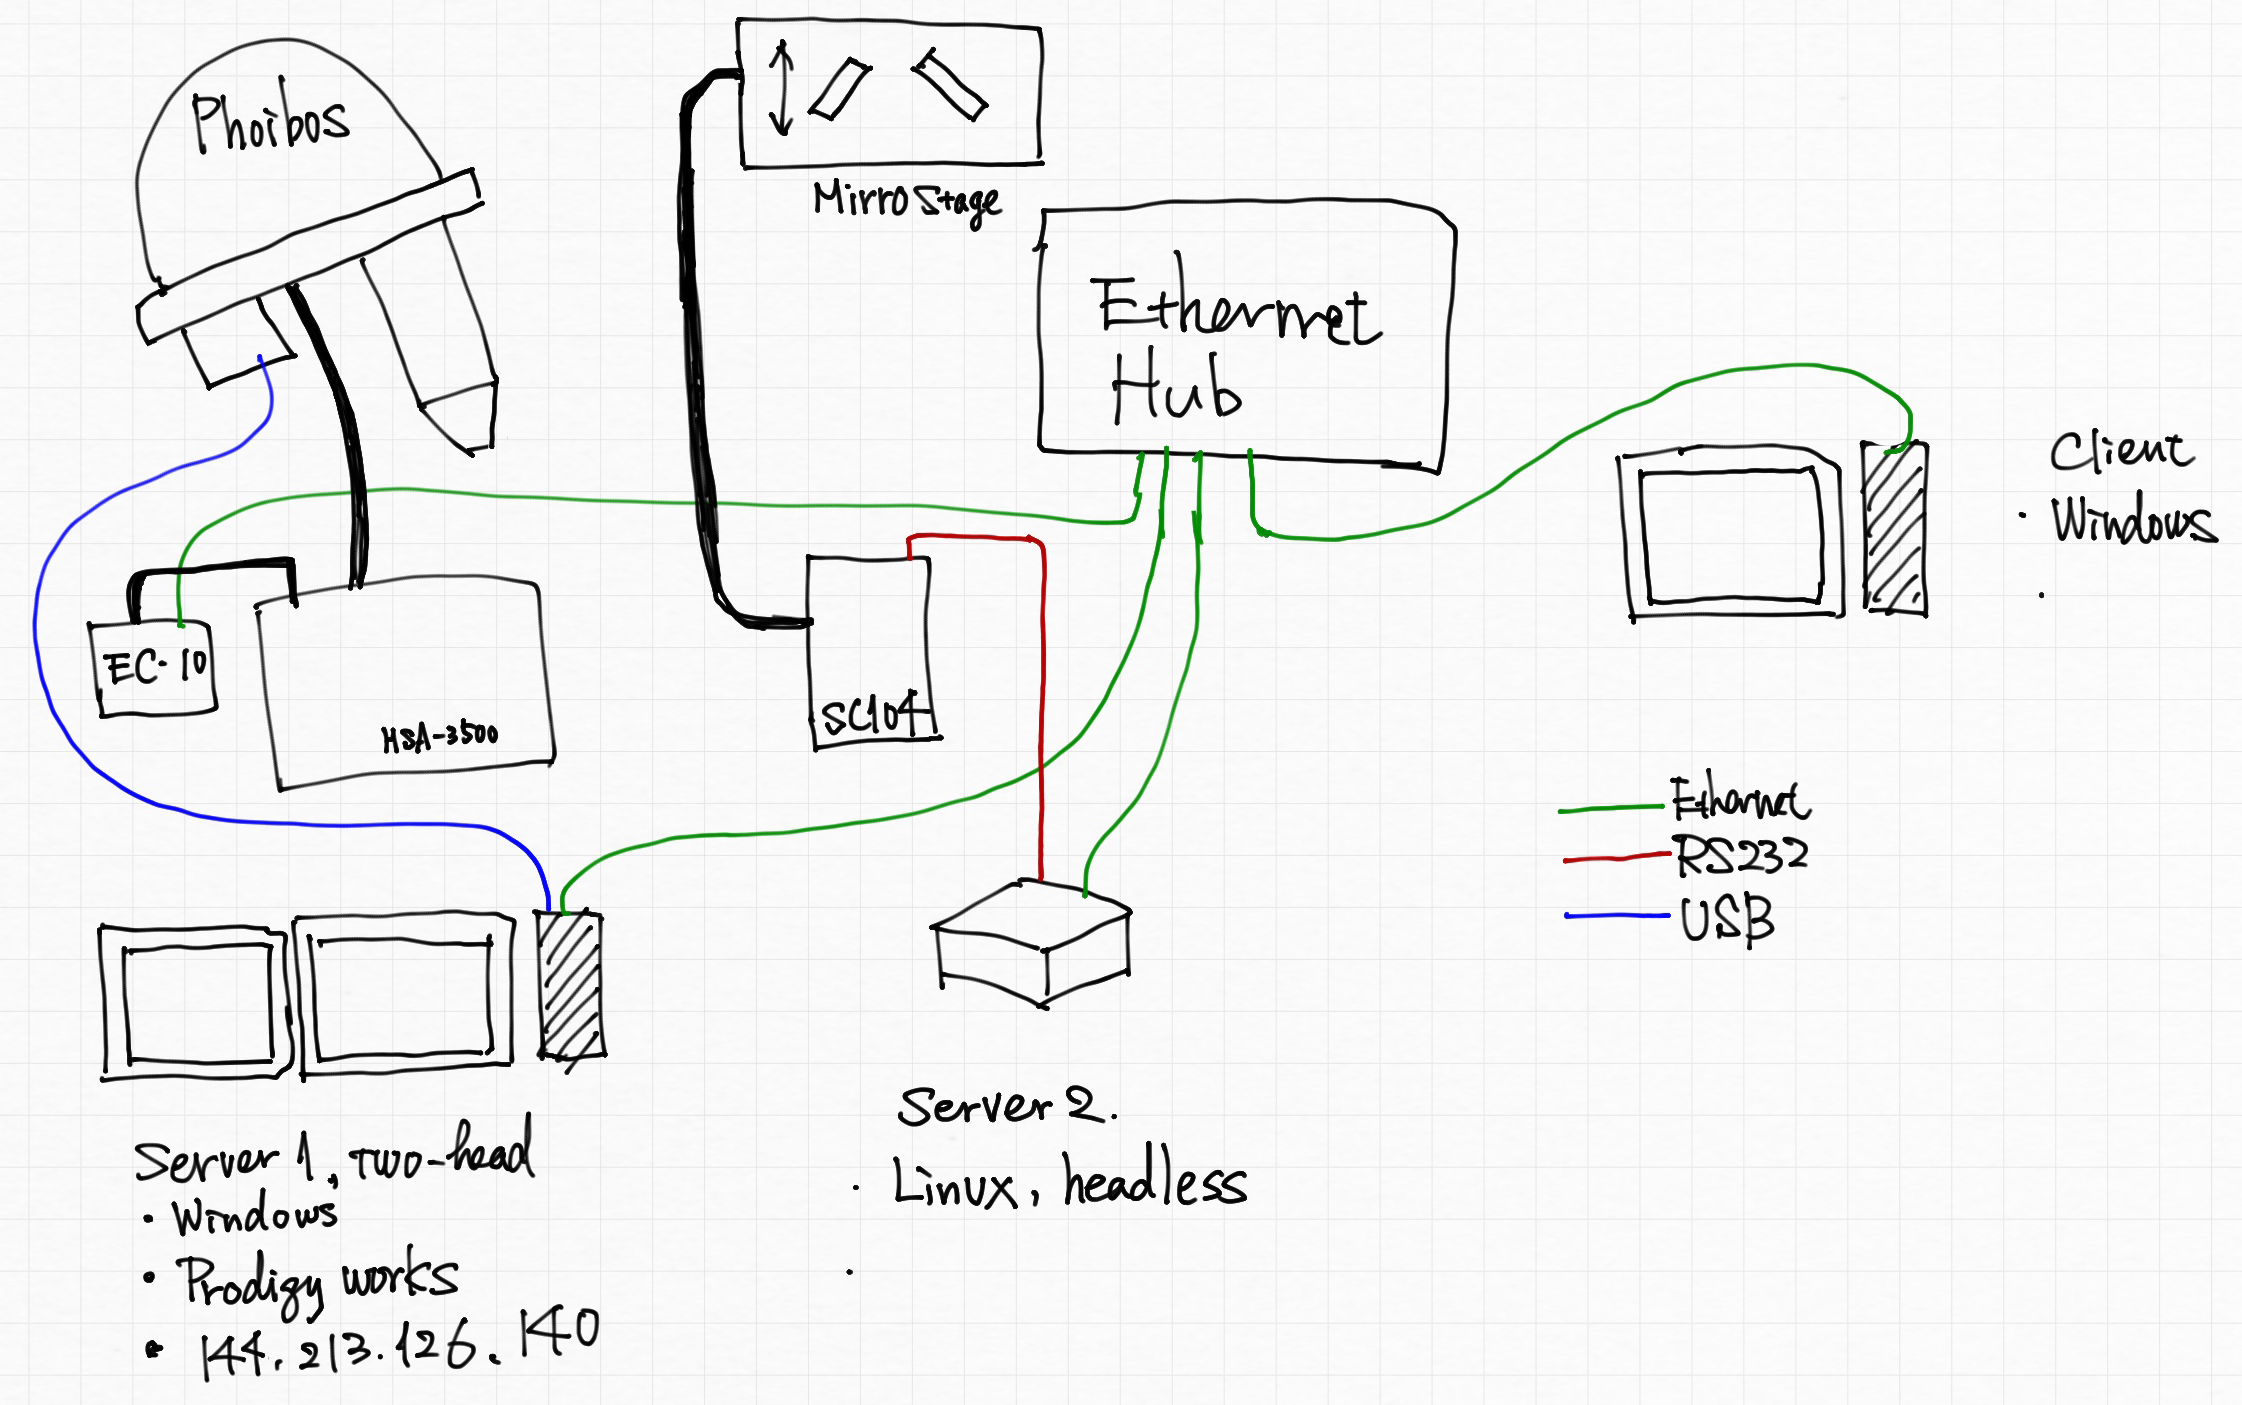 Phoibos
Mirrostage
Ethernet
Hub
Client
· Windows
·
EC-10
HSA-3500
SC104
Ethernet
RS232
USB
Server 1, two-head
· Windows
· Prodigy works
· 144.213.126.140
Server 2.
· Linux, headless
·